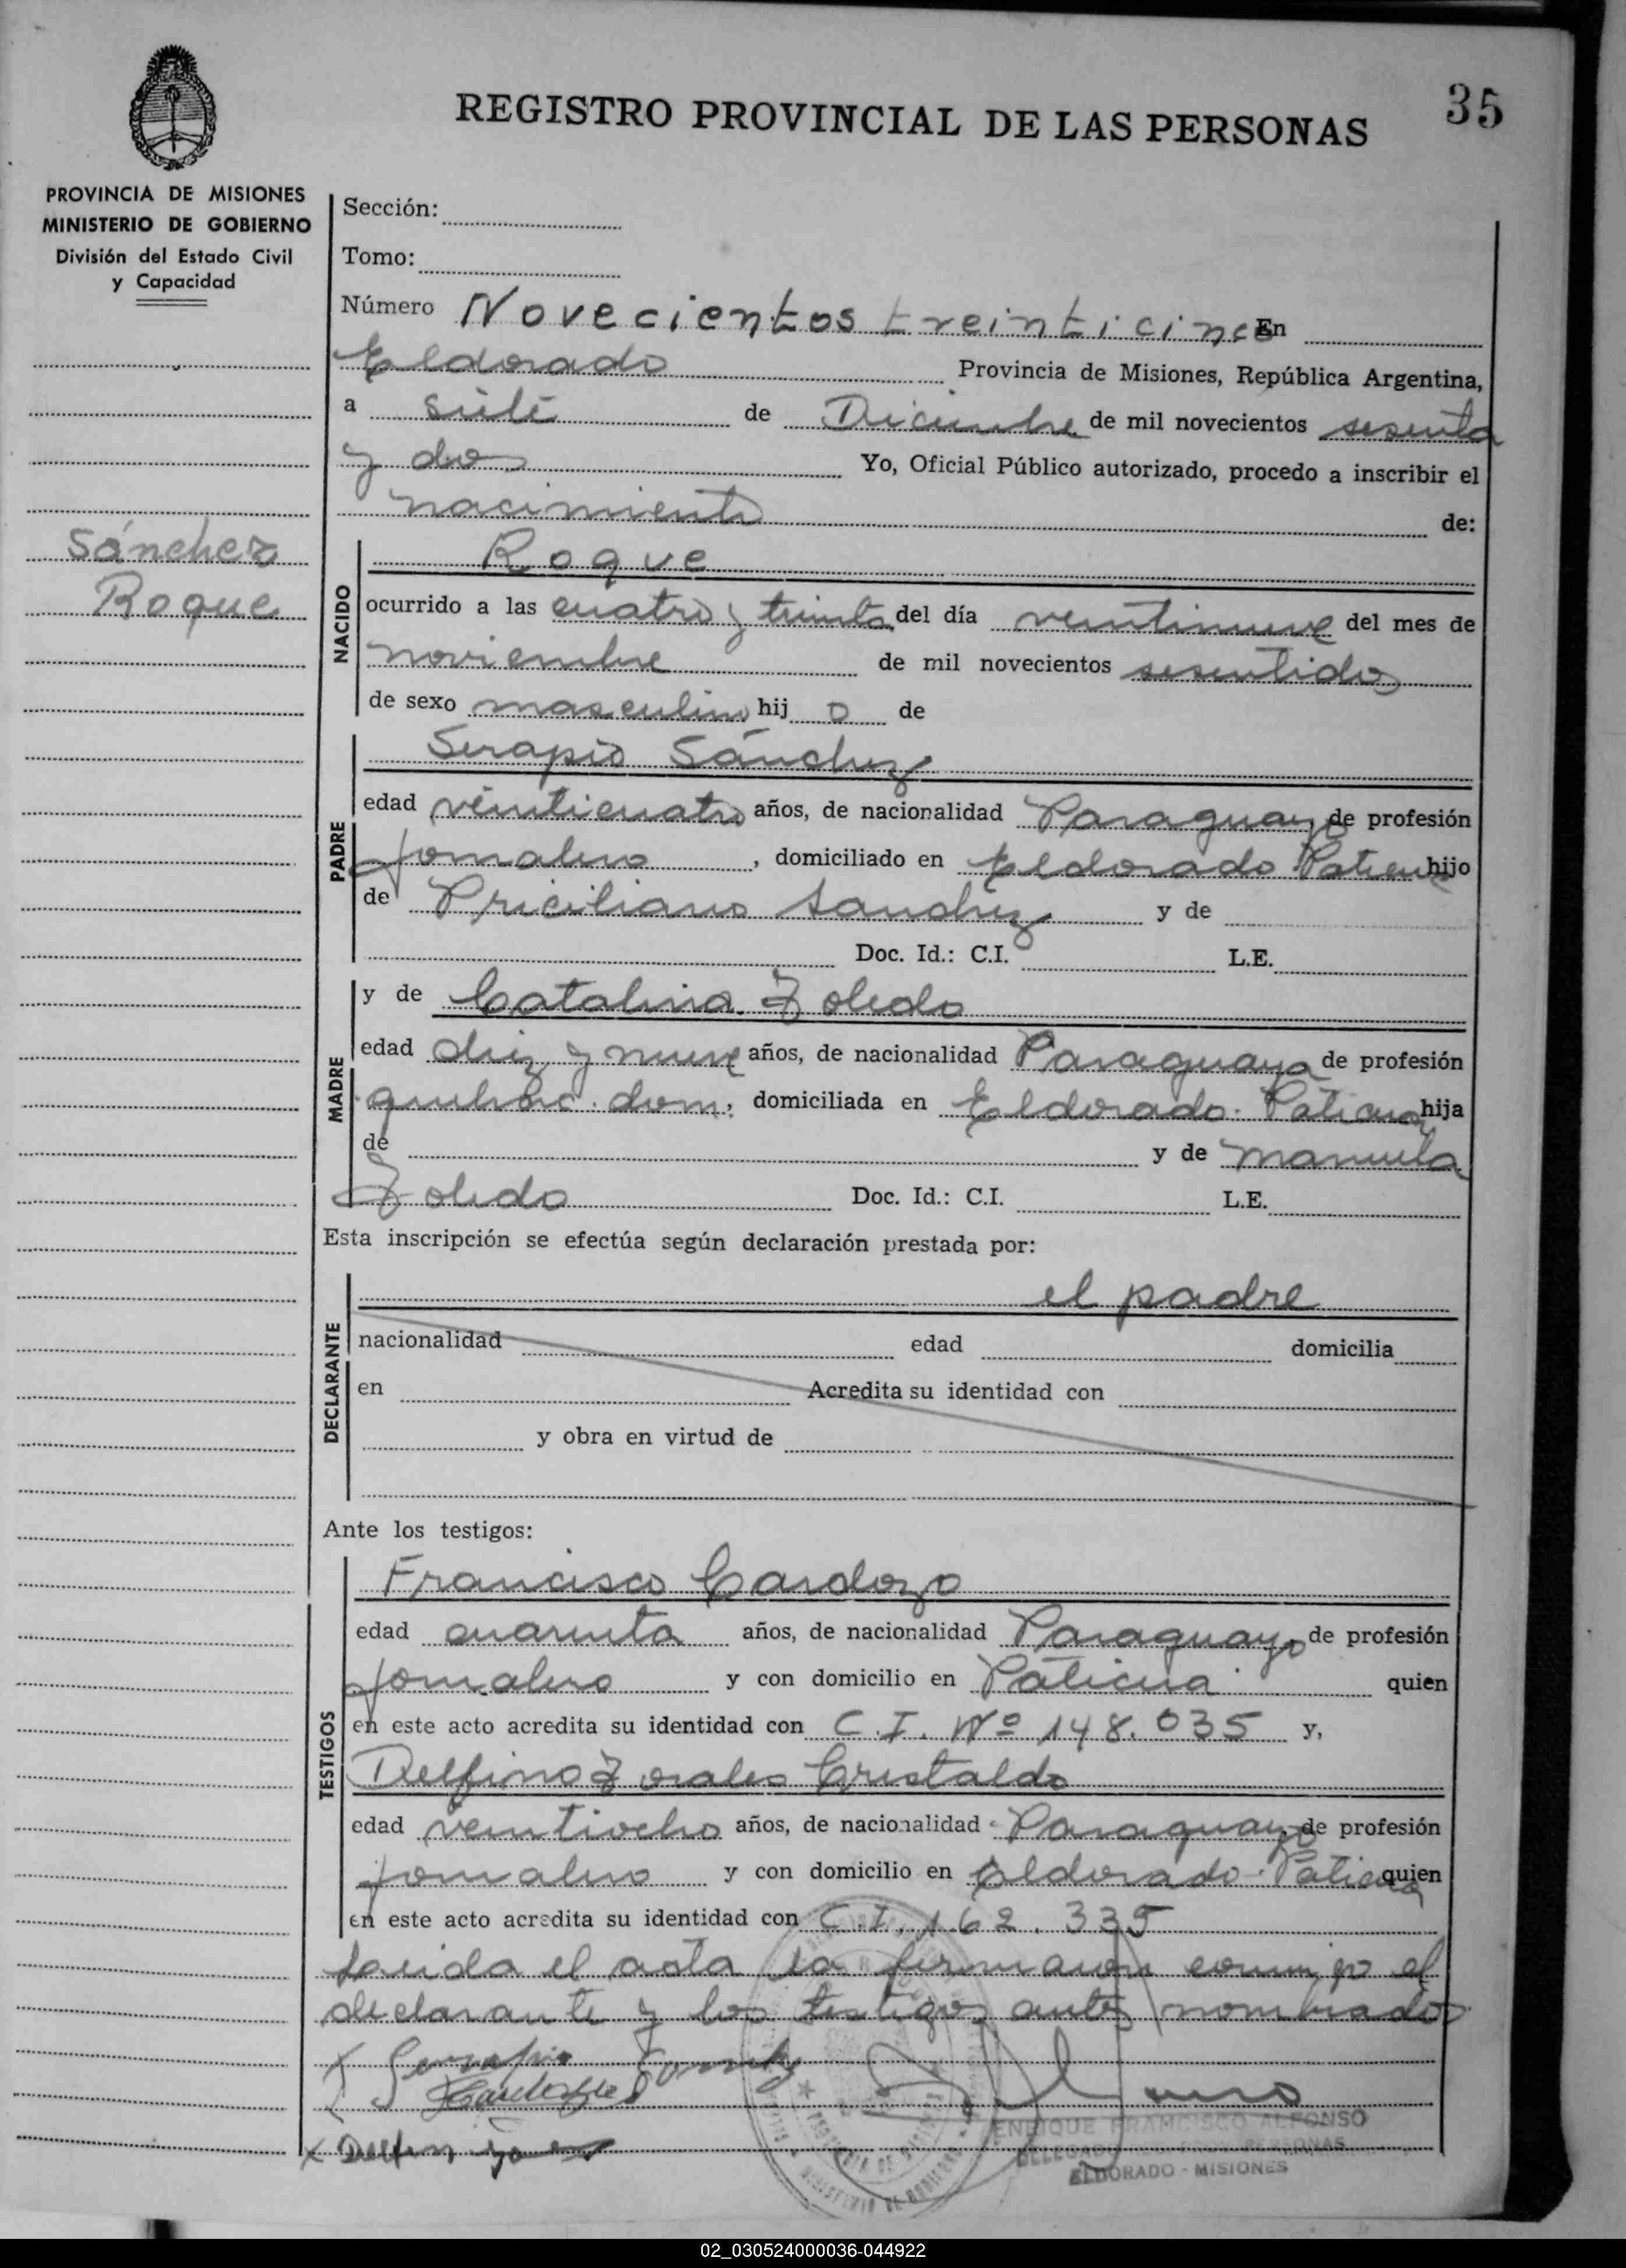 35
REGISTRO PROVINCIAL DE LAS PERSONAS
PROVINCIA DE MISIONES
MINISTERIO DE GOBIERNO
División del Estado Civil
y Capacidad
Sánchez
Roque
Sección:
Tomo:
Número Novecientos treinticinco En
Eldorado Provincia de Misiones, República Argentina,
a siete de Diciembre de mil novecientos sesenta
y dos Yo, Oficial Público autorizado, procedo a inscribir el
nacimiento de:
NACIDO
Roque
ocurrido a las cuatro y treinta del día veintinueve del mes de
noviembre de mil novecientos sesentidos
de sexo masculino hij o de
PADRE
Serapio Sánchez
edad veinticuatro años, de nacionalidad Paraguayo de profesión
jornalero , domiciliado en Eldorado hijo
de Priciliano Sanchez y de
Doc. Id.: C.I. L.E.
MADRE
y de Catalina Toledo
edad diez y nueve años, de nacionalidad Paraguaya de profesión
quehac. dom. , domiciliada en Eldorado hija
de y de Manuela
Toledo Doc. Id.: C.I. L.E.
Esta inscripción se efectúa según declaración prestada por:
DECLARANTE
el padre
nacionalidad edad domicilia
en Acredita su identidad con
y obra en virtud de
Ante los testigos:
TESTIGOS
Francisco Cardozo
edad cuarenta años, de nacionalidad Paraguayo de profesión
jornalero y con domicilio en quien
en este acto acredita su identidad con C.I. Nº 148.035 y,
Delfino Cristaldo
edad veintiocho años, de nacionalidad Paraguayo de profesión
jornalero y con domicilio en Eldorado quien
en este acto acredita su identidad con C.I. 162.335
Leida el acta la firman conmigo el
declarante y los testigos antes nombrados
Serapio
ENRIQUE FRANCISCO ALFONSO
ELDORADO - MISIONES
02_030524000036-044922